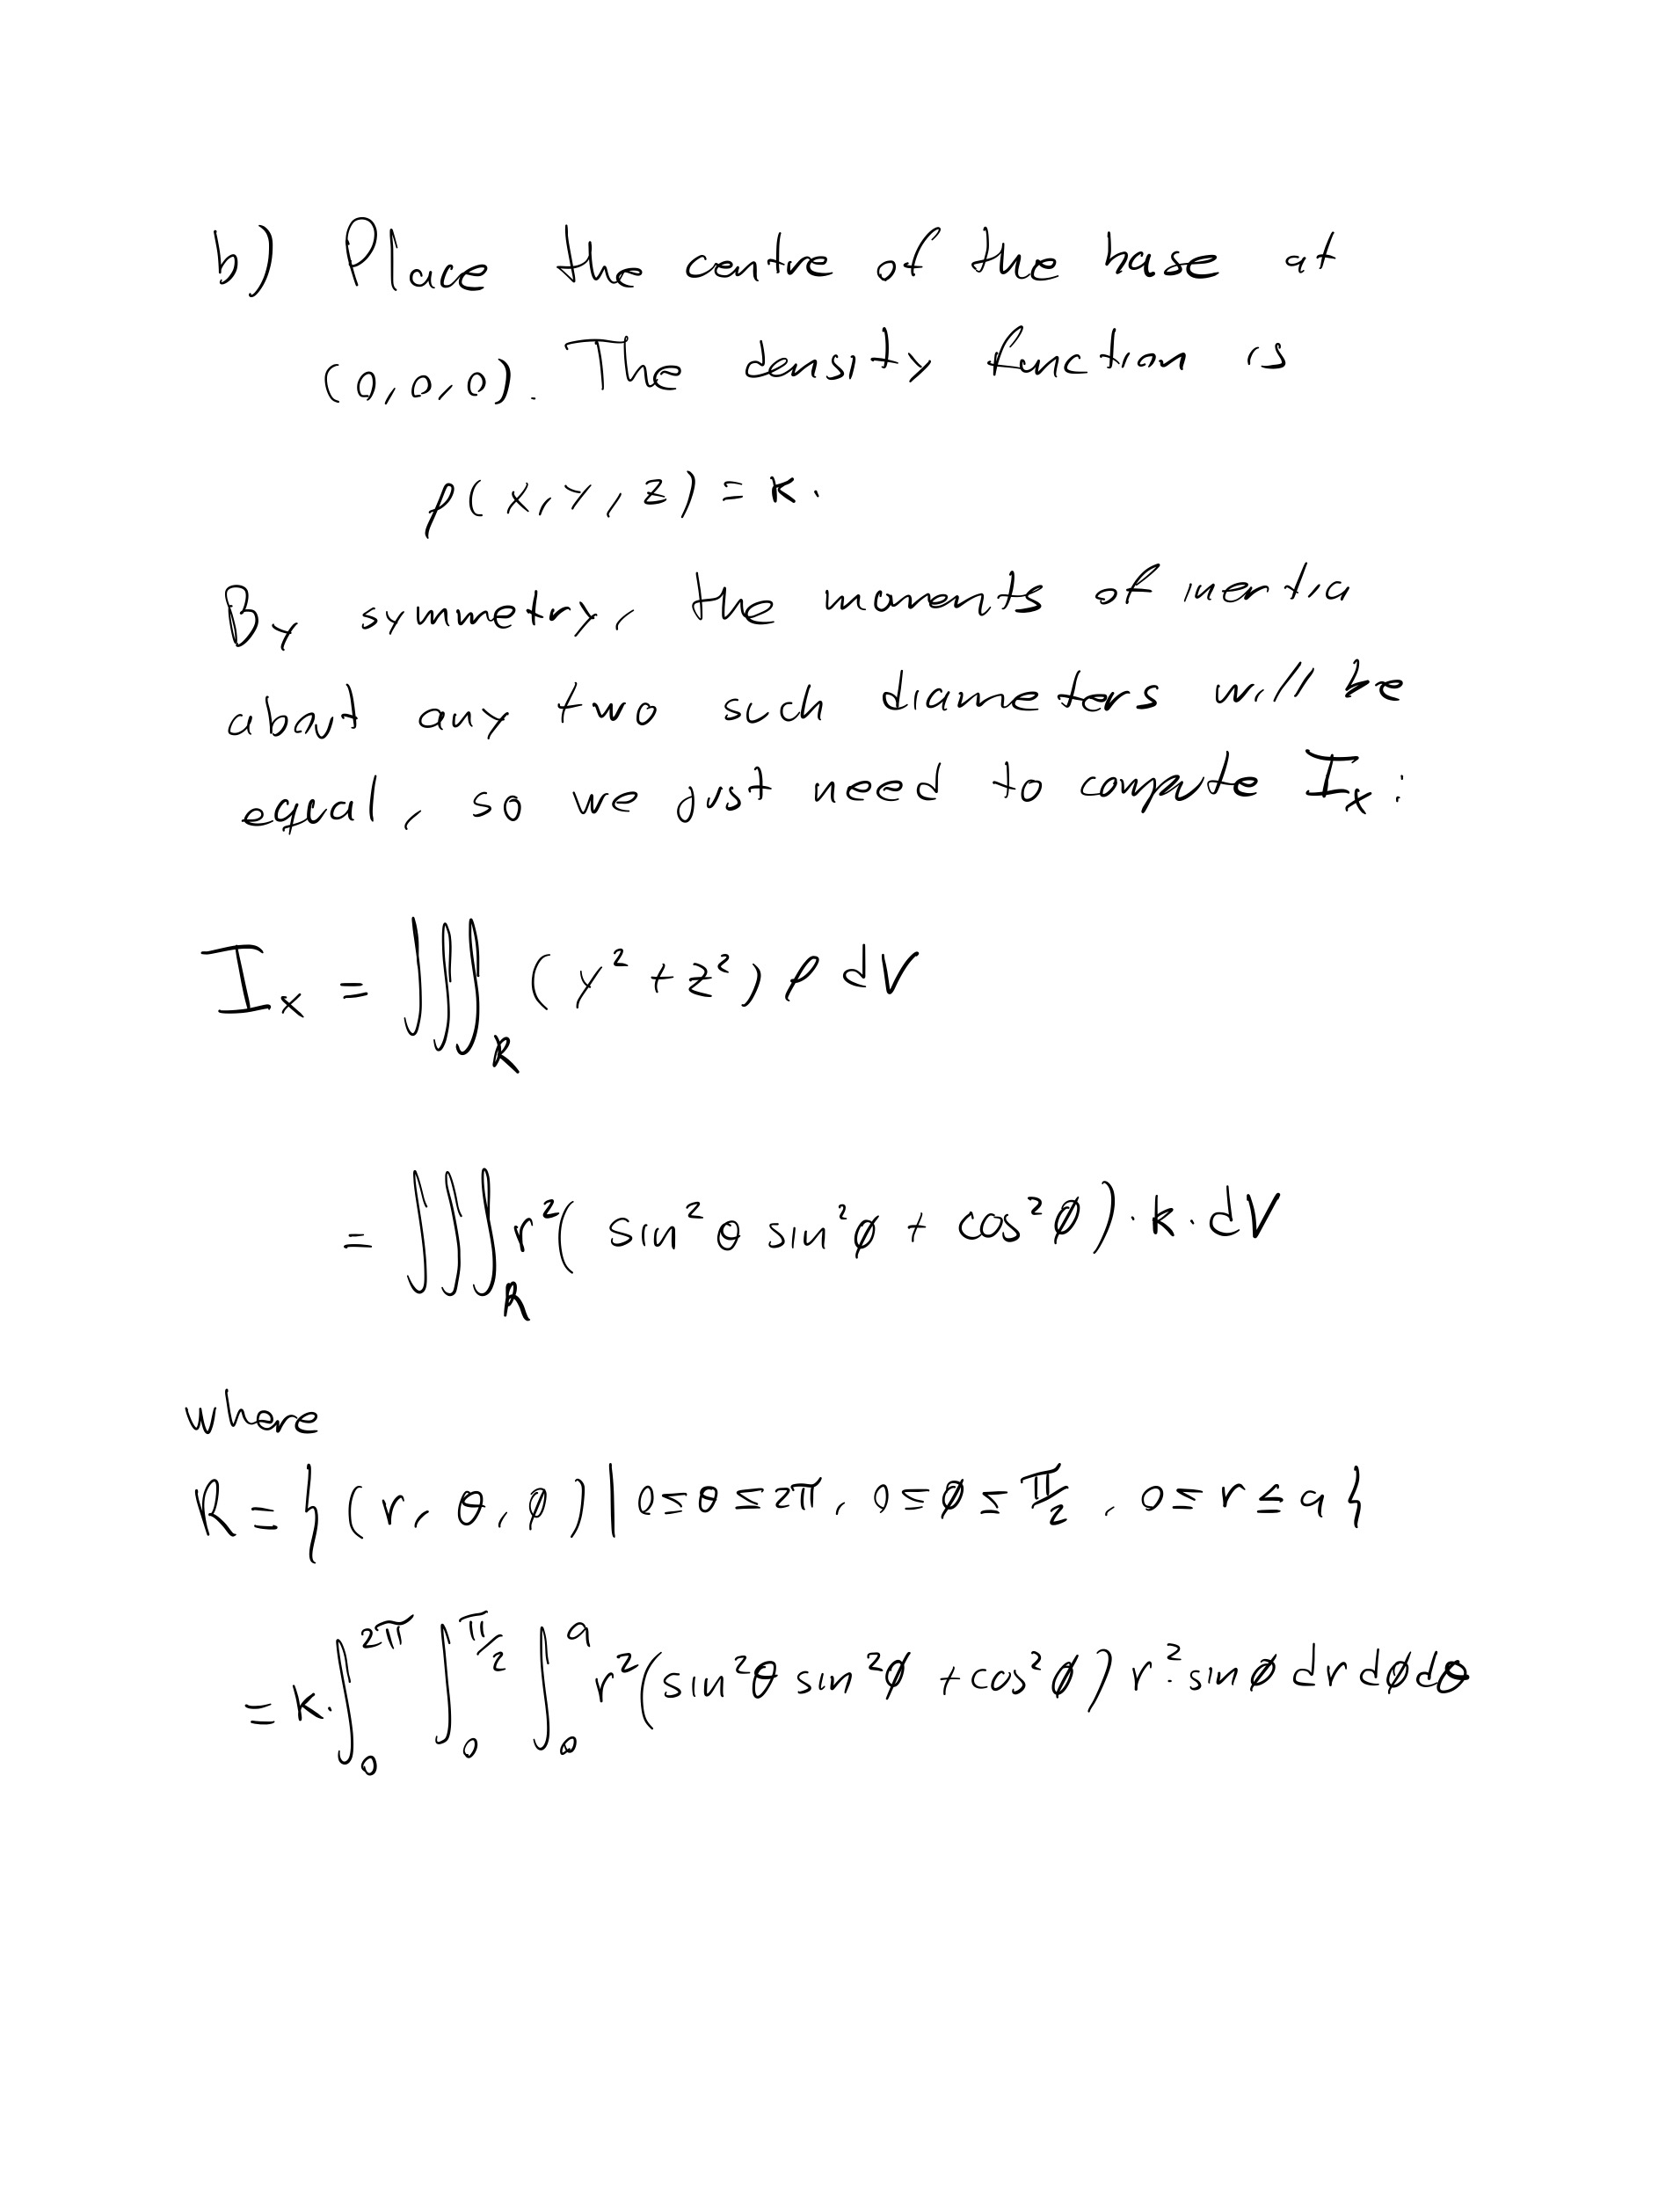 b) Place the centre of the base at
(0,0,0). The density function is
ρ(x,y,z) = K.
By symmetry, the moments of inertia
about any two such diameters will be
equal, so we just need to compute I_x:
I_x = ∭_R (y² + z²) ρ dV
= ∭_R r²( sin²θ sin²φ + cos²φ)·k·dV
where
R = {(r, θ, φ) | 0≤θ≤2π, 0≤φ≤π/2, 0≤r≤a}
= k·∫_0^{2π} ∫_0^{π/2} ∫_0^a r²(sin²θ sin²φ + cos²φ) r²·sinφ dr dφ dθ